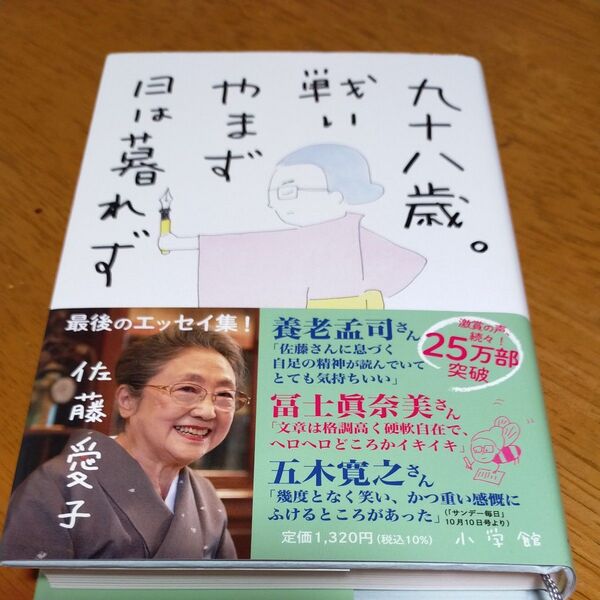 九十八歳。
戦い
やまず
日は暮れず
最後のエッセイ集！
佐藤愛子
養老孟司さん
「佐藤さんに息づく
自足の精神が読んでいて
とても気持ちいい」
激賞の声、
続々！
25万部
突破
冨士眞奈美さん
「文章は格調高く硬軟自在で、
ヘロヘロどころかイキイキ」
五木寛之さん
「幾度となく笑い、かつ重い感慨に
ふけるところがあった」
（「サンデー毎日」
10月10日号より）
定価1,320円（税込10%）
小学館